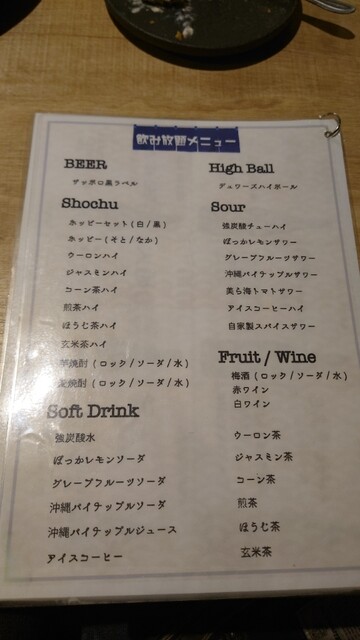 飲み放題メニュー
BEER
サッポロ黒ラベル
Shochu
ホッピーセット(白/黒)
ホッピー(そと/なか)
ウーロンハイ
ジャスミンハイ
コーン茶ハイ
煎茶ハイ
ほうじ茶ハイ
玄米茶ハイ
芋焼酎(ロック/ソーダ/水)
焼酎(ロック/ソーダ/水)
High Ball
デュワーズハイボール
Sour
強炭酸チューハイ
ぽっかレモンサワー
グレープフルーツサワー
沖縄パイナップルサワー
美ら海トマトサワー
アイスコーヒーハイ
自家製スパイスサワー
Fruit / Wine
梅酒(ロック/ソーダ/水)
赤ワイン
白ワイン
Soft Drink
強炭酸水
ぽっかレモンソーダ
グレープフルーツソーダ
沖縄パイナップルソーダ
沖縄パイナップルジュース
アイスコーヒー
ウーロン茶
ジャスミン茶
コーン茶
煎茶
ほうじ茶
玄米茶